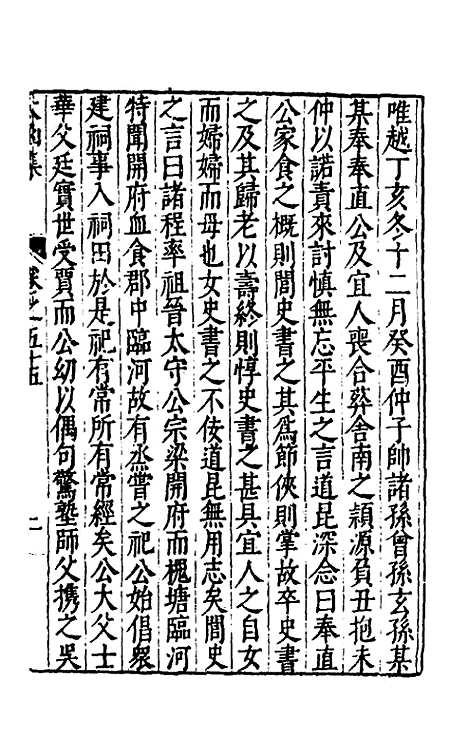 唯越丁亥冬十二月癸酉仲子帥諸孫曾孫玄孫某
某奉奉直公及宜人喪合葬舍南之穎源負丑抱未
仲以諾責來討慎無忘平生之言道昆深念曰奉直
公家食之概則閭史書之其爲節俠則掌故卒史書
之及其歸老以壽終則惇史書之甚具宜人之自女
而婦婦而母也女史書之不佞道昆無用志矣閭史
之言曰諸程率祖晉太守公宗梁開府而槐塘臨河
特聞開府血食郡中臨河故有烝嘗之祀公始倡衆
建祠事入祠田於是祀有常所有常經矣公大父士
華父廷實世受賈而公幼以偶句驚塾師父攜之吳
太函集
卷之五十五
二